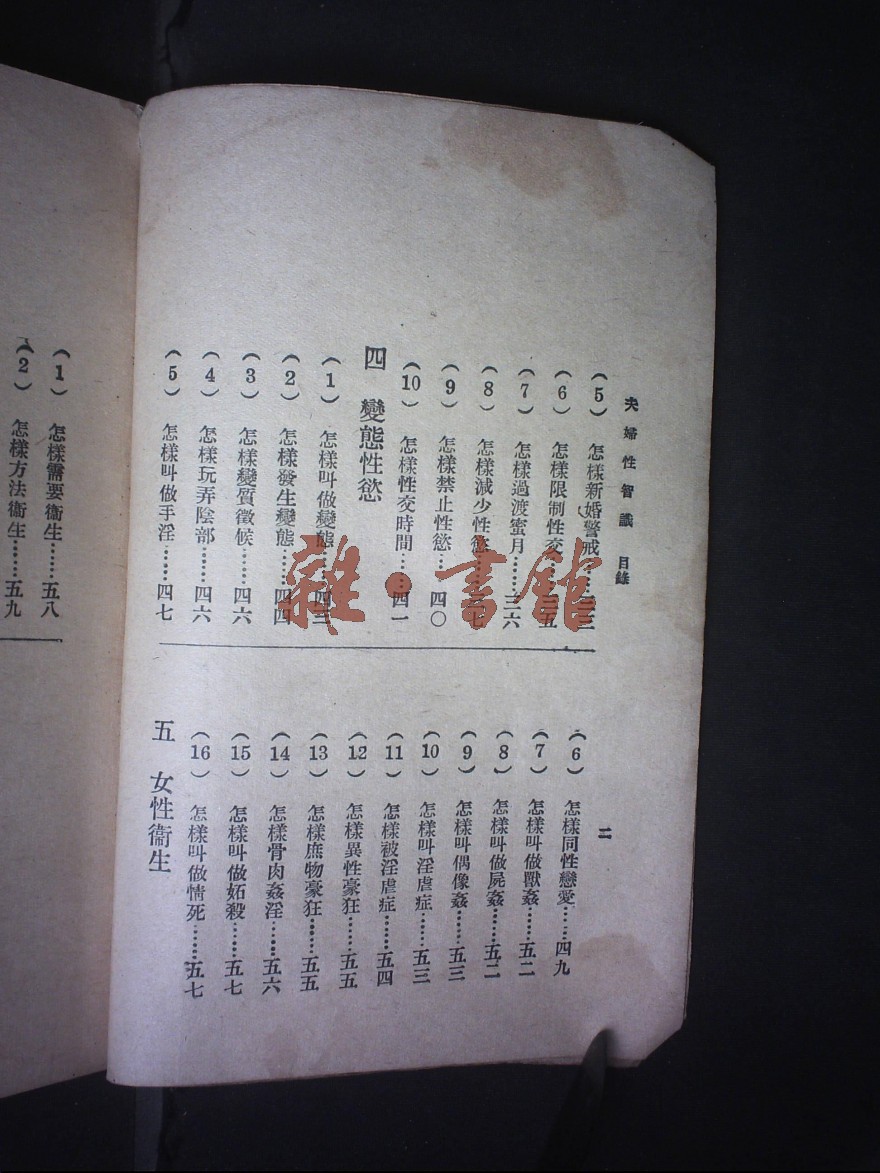 夫婦性智識 目錄
二
(5) 怎樣新婚警戒……三三
(6) 怎樣限制性交……三五
(7) 怎樣過渡蜜月……三六
(8) 怎樣減少性慾……三七
(9) 怎樣禁止性慾……四〇
(10) 怎樣性交時間……四一
四 變態性慾
(1) 怎樣叫做變態……四三
(2) 怎樣發生變態……四四
(3) 怎樣變質徵候……四六
(4) 怎樣玩弄陰部……四六
(5) 怎樣叫做手淫……四七
(6) 怎樣同性戀愛……四九
(7) 怎樣叫做獸姦……五二
(8) 怎樣叫做屍姦……五二
(9) 怎樣叫偶像姦……五三
(10) 怎樣叫淫虐症……五三
(11) 怎樣被淫虐症……五四
(12) 怎樣異性豪狂……五五
(13) 怎樣庶物豪狂……五五
(14) 怎樣骨肉姦淫……五六
(15) 怎樣叫做妬殺……五七
(16) 怎樣叫做情死……五七
五 女性衞生
(1) 怎樣需要衞生……五八
(2) 怎樣方法衞生……五九
雜·書館